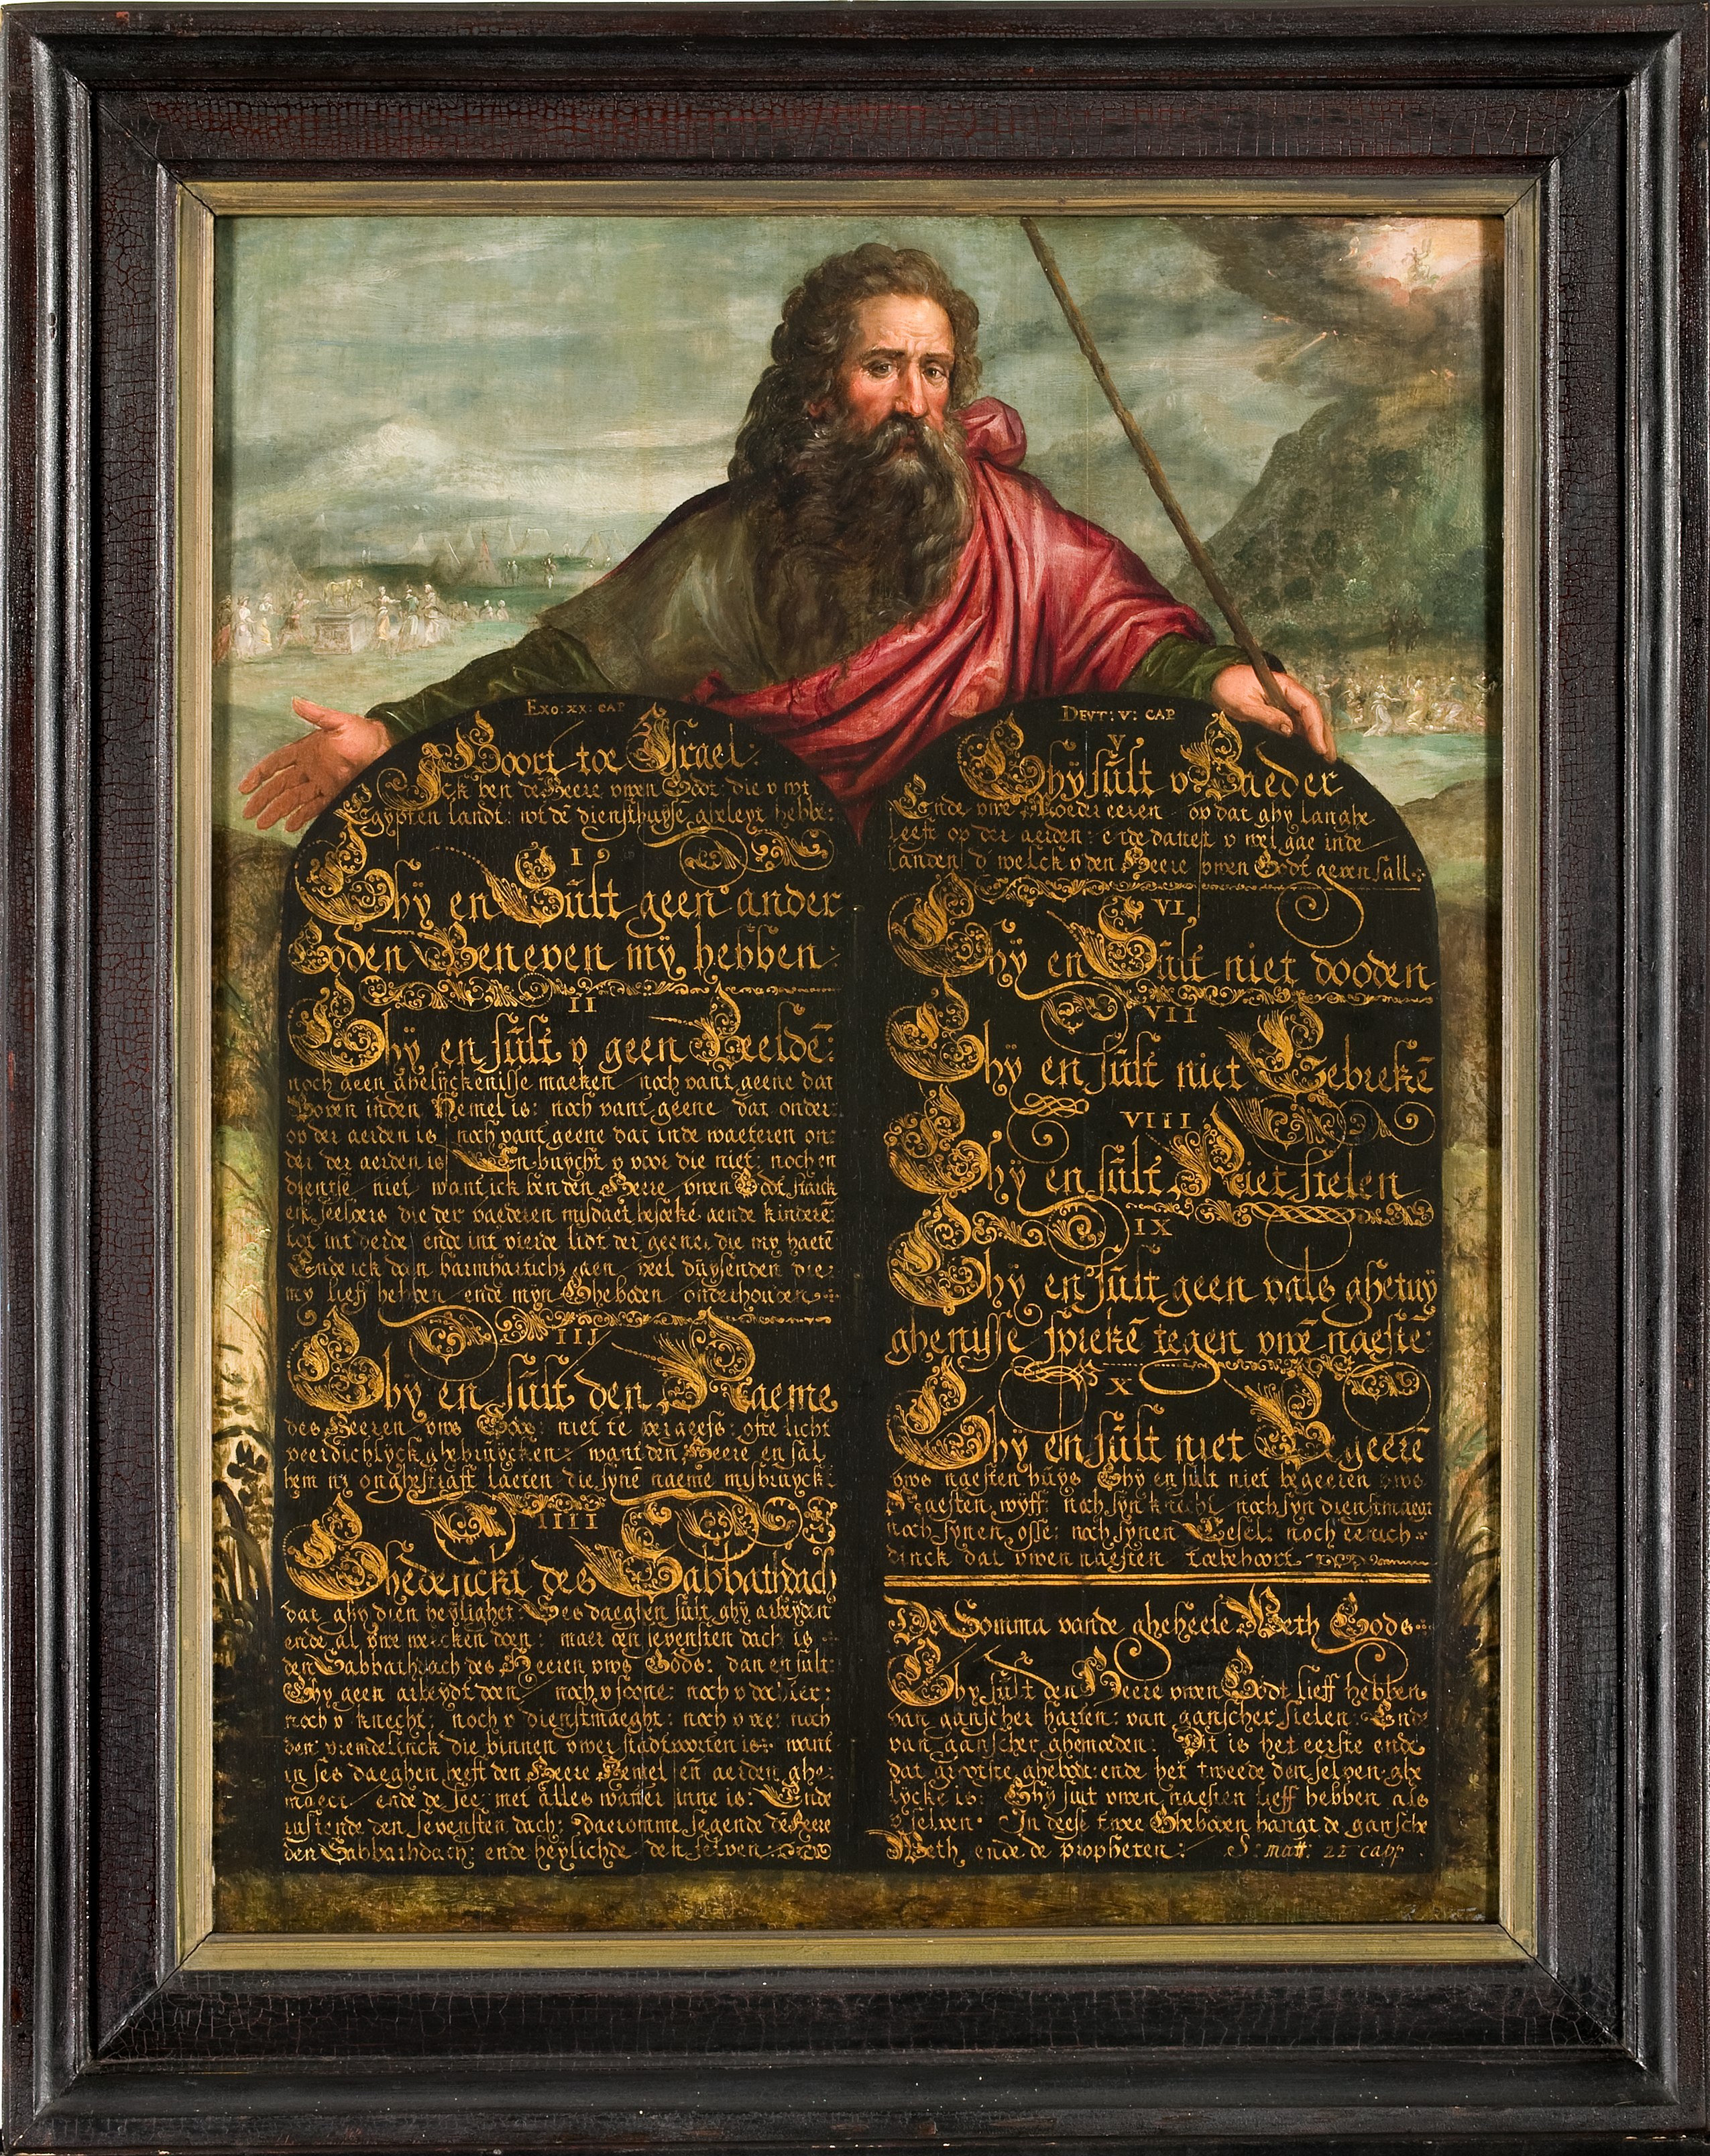 EXO: XX: CAP
Hoort toe Israel
Ick ben de Heere uwen Godt: die v wt
Egypten landt: wt dē diensthuyse gheleyt hebbe:
I
Ghÿ en Sult geen ander
Goden Beneven mÿ hebben:
II
Ghÿ en sult v geen Beeldē:
noch geen ghelyckenisse maeken noch vant geene dat
Boven inden Hemel is: noch vant geene dat onder
op der aerden is noch vant geene dat inde waeteren on:
der der aerden is En buycht v voor die niet: noch en
dientse niet want ick ben den Heere uwen Godt starck
die der vaederen misdaet besoekē aende kinderē
tot int derde ende int vierde lidt der geene die my haetē
Ende ick doen barmhartich: aen veel duysenden die
my lieff hebben ende myn Gheboden onderhouden
III
Ghÿ en sult den Naeme
des Heeren vws Gods: niet te vergeefs: ofte licht
veerdichlyck ghebruycken: want den Heere en sal
hem nz onghestrafft laeten die synē naeme misbruyckt
IIII
Ghedenckt des Sabbathdach
dat ghy dien heylighet: Ses daeghen sult ghy arbeyden
ende al uwe wercken doen: maer den sevensten dach is
den Sabbathdach des Heeren vws Gods: dan en sult
Ghy geen arbeydt doen noch v soone: noch v dochter:
noch v knecht: noch v dienstmaeght: noch v vee: noch
den vremdelinck die binnen uwer stadtpoorten is: want
in ses daeghen heeft den Heere Hemel eñ aerden ghe:
maect ende de see met alles watter inne is: Ende
rustende den sevensten dach: Daeromme segende de Heere
den Sabbathdach: ende heylichde den selven
DEVT: V: CAP
V
Ghÿ sult v Vaeder
Ende uwe Moeder eeren op dat ghy langhe
leeft op der aerden: ende dattet v wel gae inde
landen d welck v den Heere uwen Godt geven sall
VI
Ghÿ en Sult niet dooden
VII
Ghÿ en sult niet Eebrekē
VIII
Ghÿ en sult Niet stelen
IX
Ghÿ en sult geen vals ghetuÿ
ghenisse sprekē tegen uwē naestē:
X
Ghÿ en sult niet Bgeerē
vws naesten huys Ghy en sult niet begeeren vws
Naesten wyff: noch syn knecht noch syn dienstmaegt
noch synen osse: noch synen Eesel: noch eenich
dinck dat uwen naesten toebehoort
De Somma vande gheheele Weth Gods
Ghy sult den Heere uwen Godt lieff hebben
van ganscher harten: van ganscher sielen: Ende
van ganscher ghemoeden: Dit is het eerste ende
dat grootste ghebodt: ende het tweede den selven ghe
lycke is: Ghy sult uwen naesten lieff hebben als
v selven: In deese twee Gheboden hangt de gansche
Weth ende de propheten: S: matt: 22 capp